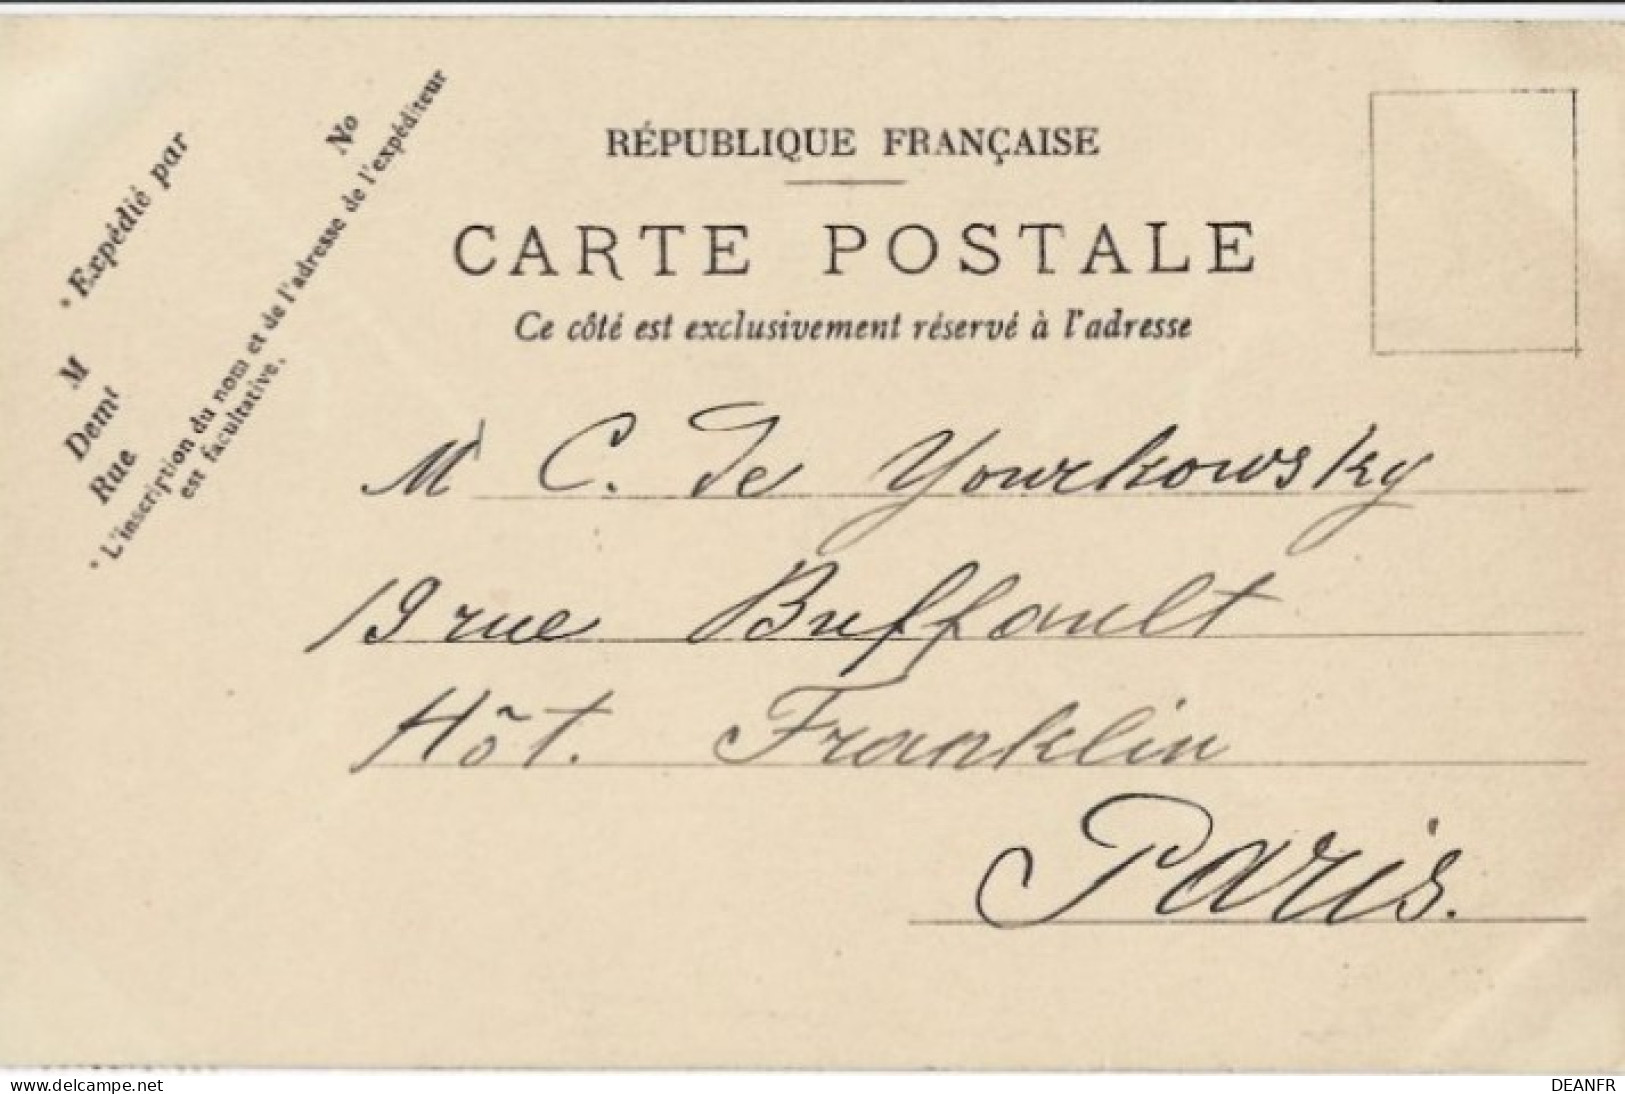 * Expédié par
M
Demt
Rue
No
* L'inscription du nom et de l'adresse de l'expéditeur
est facultative.
RÉPUBLIQUE FRANÇAISE
CARTE POSTALE
Ce côté est exclusivement réservé à l'adresse
M C. de Yourkowsky
19 rue Buffault
Hôt. Franklin
Paris.
www.delcampe.net
DEANFR